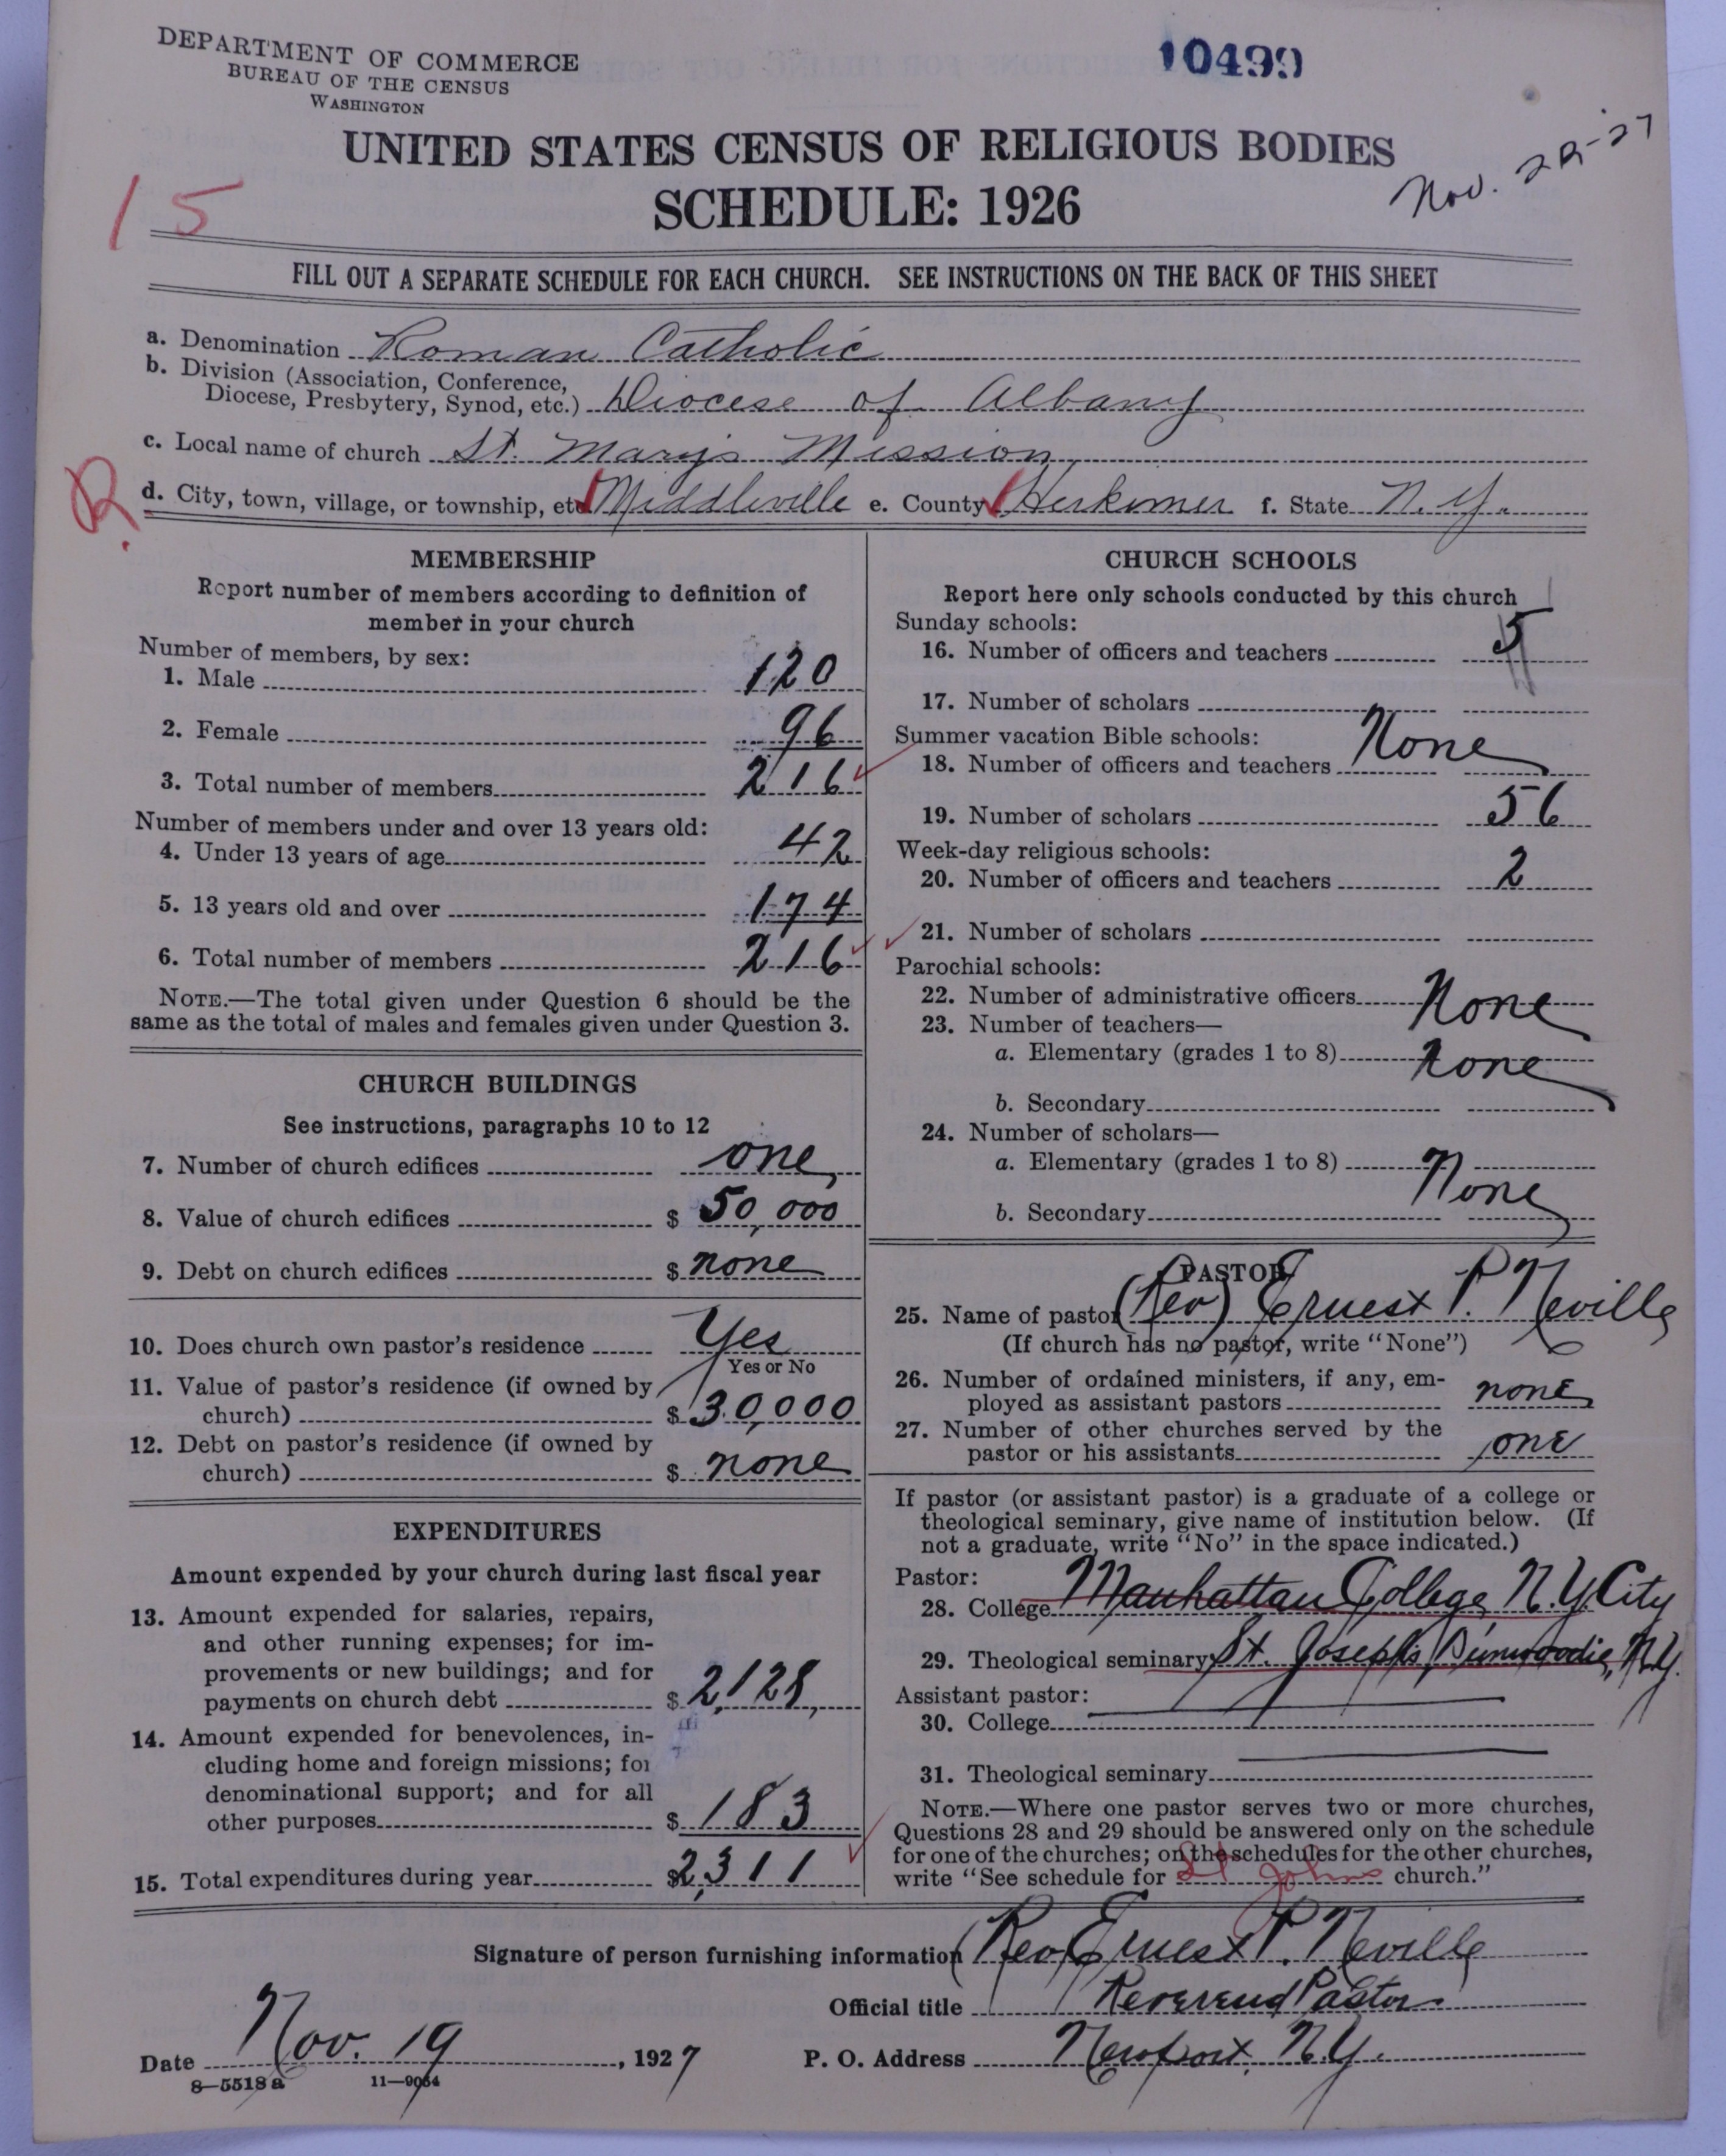 DEPARTMENT OF COMMERCE
BUREAU OF THE CENSUS
WASHINGTON
10499
Nov. 22-27
UNITED STATES CENSUS OF RELIGIOUS BODIES
SCHEDULE: 1926
15
FILL OUT A SEPARATE SCHEDULE FOR EACH CHURCH. SEE INSTRUCTIONS ON THE BACK OF THIS SHEET
a. Denomination Roman Catholic
b. Division (Association, Conference,
Diocese, Presbytery, Synod, etc.) Diocese of Albany
c. Local name of church St. Mary's Mission
R.
d. City, town, village, or township, etc Middleville e. County Herkimer f. State N.Y.
MEMBERSHIP
Report number of members according to definition of
member in your church
Number of members, by sex:
1. Male 120
2. Female 96
3. Total number of members 216
Number of members under and over 13 years old:
4. Under 13 years of age 42
5. 13 years old and over 174
6. Total number of members 216
NOTE.—The total given under Question 6 should be the
same as the total of males and females given under Question 3.
CHURCH BUILDINGS
See instructions, paragraphs 10 to 12
7. Number of church edifices one
8. Value of church edifices $ 50,000
9. Debt on church edifices $ none
10. Does church own pastor's residence Yes
Yes or No
11. Value of pastor's residence (if owned by
church) $ 30,000
12. Debt on pastor's residence (if owned by
church) $ none
EXPENDITURES
Amount expended by your church during last fiscal year
13. Amount expended for salaries, repairs,
and other running expenses; for im-
provements or new buildings; and for
payments on church debt $ 2,128
14. Amount expended for benevolences, in-
cluding home and foreign missions; for
denominational support; and for all
other purposes $ 183
15. Total expenditures during year $ 2,311
CHURCH SCHOOLS
Report here only schools conducted by this church
Sunday schools:
16. Number of officers and teachers 5
17. Number of scholars
Summer vacation Bible schools:
18. Number of officers and teachers None
19. Number of scholars 56
Week-day religious schools:
20. Number of officers and teachers 2
21. Number of scholars
Parochial schools:
22. Number of administrative officers None
23. Number of teachers—
a. Elementary (grades 1 to 8) None
b. Secondary
24. Number of scholars—
a. Elementary (grades 1 to 8) None
b. Secondary
PASTOR
25. Name of pastor (Rev) Ernest P. Neville
(If church has no pastor, write "None")
26. Number of ordained ministers, if any, em-
ployed as assistant pastors none
27. Number of other churches served by the
pastor or his assistants one
If pastor (or assistant pastor) is a graduate of a college or
theological seminary, give name of institution below. (If
not a graduate, write "No" in the space indicated.)
Pastor:
28. College Manhattan College, N.Y. City
29. Theological seminary St. Joseph's, Dunwoodie, N.Y.
Assistant pastor:
30. College
31. Theological seminary
NOTE.—Where one pastor serves two or more churches,
Questions 28 and 29 should be answered only on the schedule
for one of the churches; on the schedules for the other churches,
write "See schedule for St Johns church."
Signature of person furnishing information (Rev) Ernest P. Neville
Official title Reverend Pastor
Date Nov. 19, 1927 P. O. Address Newport, N.Y.
8—5518 a 11—9054